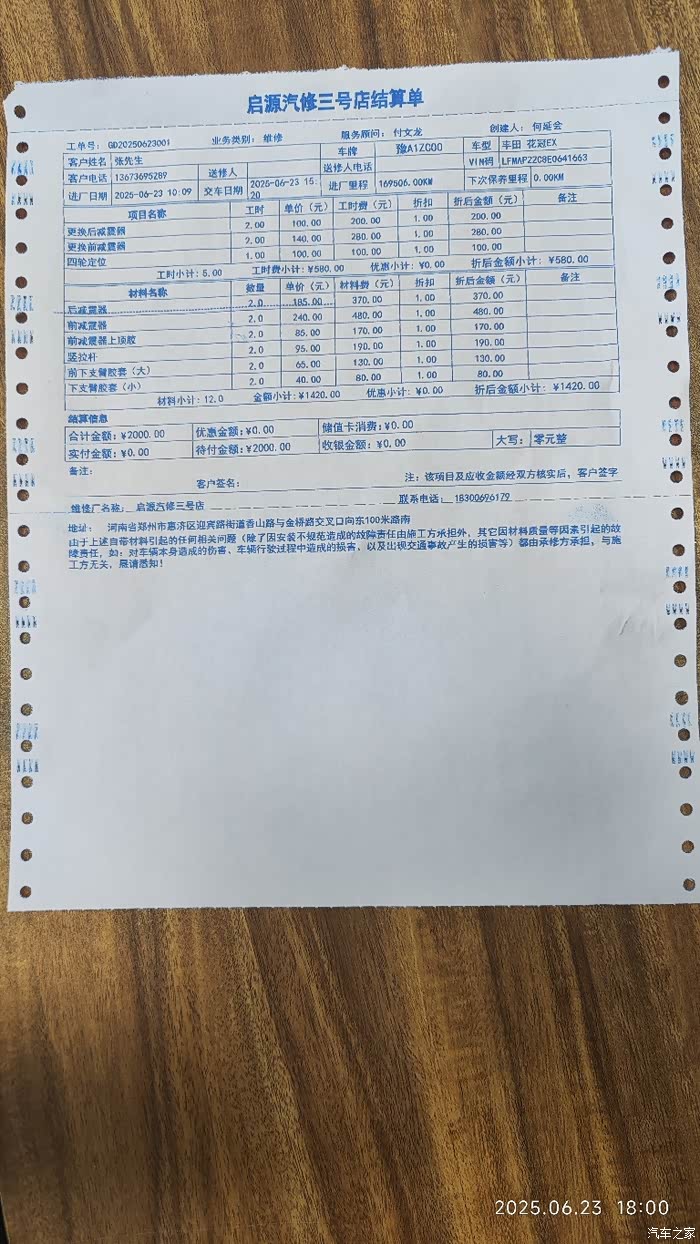 启源汽修三号店结算单
工单号: GD20250623001 业务类别: 维修 服务顾问: 付文龙 创建人: 何延会
客户姓名 张先生 车牌 豫A1ZC00 车型 丰田 花冠EX
客户电话 13673695289 送修人 送修人电话 VIN码 LFMAP22C8E0641663
进厂日期 2025-06-23 10:09 交车日期 2025-06-23 15:20 进厂里程 169506.00KM 下次保养里程 0.00KM
项目名称 工时 单价(元) 工时费(元) 折扣 折后金额(元) 备注
更换后减震器 2.00 100.00 200.00 1.00 200.00
更换前减震器 2.00 140.00 280.00 1.00 280.00
四轮定位 1.00 100.00 100.00 1.00 100.00
工时小计: 5.00 工时费小计: ¥580.00 优惠小计: ¥0.00 折后金额小计: ¥580.00
材料名称 数量 单价(元) 材料费(元) 折扣 折后金额(元) 备注
后减震器 2.0 185.00 370.00 1.00 370.00
前减震器 2.0 240.00 480.00 1.00 480.00
前减震器上顶胶 2.0 85.00 170.00 1.00 170.00
竖拉杆 2.0 95.00 190.00 1.00 190.00
前下支臂胶套(大) 2.0 65.00 130.00 1.00 130.00
下支臂胶套(小) 2.0 40.00 80.00 1.00 80.00
材料小计: 12.0 金额小计: ¥1420.00 优惠小计: ¥0.00 折后金额小计: ¥1420.00
结算信息
合计金额: ¥2000.00 优惠金额: ¥0.00 储值卡消费: ¥0.00
实付金额: ¥0.00 待付金额: ¥2000.00 收银金额: ¥0.00 大写: 零元整
备注:
客户签名: 注: 该项目及应收金额经双方核实后, 客户签字
维修厂名称: 启源汽修三号店 联系电话: 18300696179
地址: 河南省郑州市惠济区迎宾路街道香山路与金桥路交叉口向东100米路南
由于上述自带材料引起的任何相关问题(除了因安装不规范造成的故障责任由施工方承担外, 其它因材料质量等因素引起的故
障责任, 如: 对车辆本身造成的伤害、车辆行驶过程中造成的损害、以及出现交通事故产生的损害等)都由承修方承担, 与施
工方无关, 愿请悉知!
2025.06.23 18:00
汽车之家